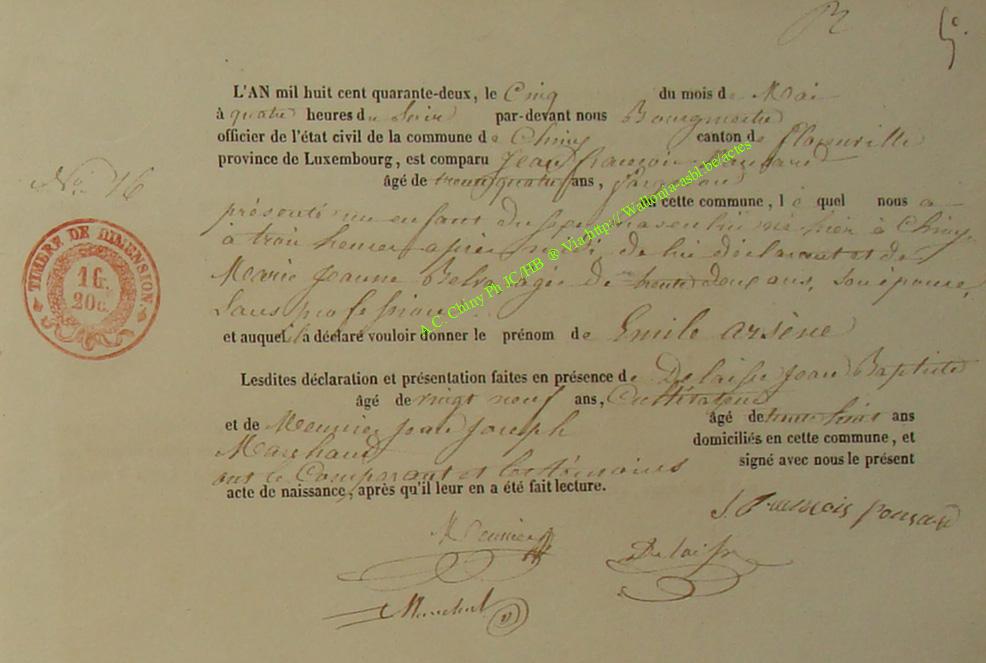 5e
L'AN mil huit cent quarante-deux, le Cinq du mois de Mai
à quatre heures du Soir par-devant nous Bourgmestre
officier de l'état civil de la commune de Chiny canton de Florenville
province de Luxembourg, est comparu Jean françois Ponsard
No. 16
âgé de trente quatre ans,
de cette commune, lequel nous a
présenté un enfant du sexe masculin né hier à Chiny
à trois heures après midi, de lui déclarant et de
Marie Jeanne agée de trente deux ans, son épouse,
Sans profession
et auquel il a déclaré vouloir donner le prénom de Emile arsène
Lesdites déclaration et présentation faites en présence de Delaisse Jean Baptiste
âgé de vingt neuf ans, Cultivateur
et de Meunier Jean Joseph âgé de trente ans
Marchand domiciliés en cette commune, et
ont le Comparant et les témoins signé avec nous le présent
acte de naissance, après qu'il leur en a été fait lecture.
J. François Ponsard
Meunier
Delaisse
Marechal
TIMBRE DE DIMENSION.
1f.
20c.
A.C. Chiny Ph JC/HB ® Via http:// Wallonia-asbl.be/actes